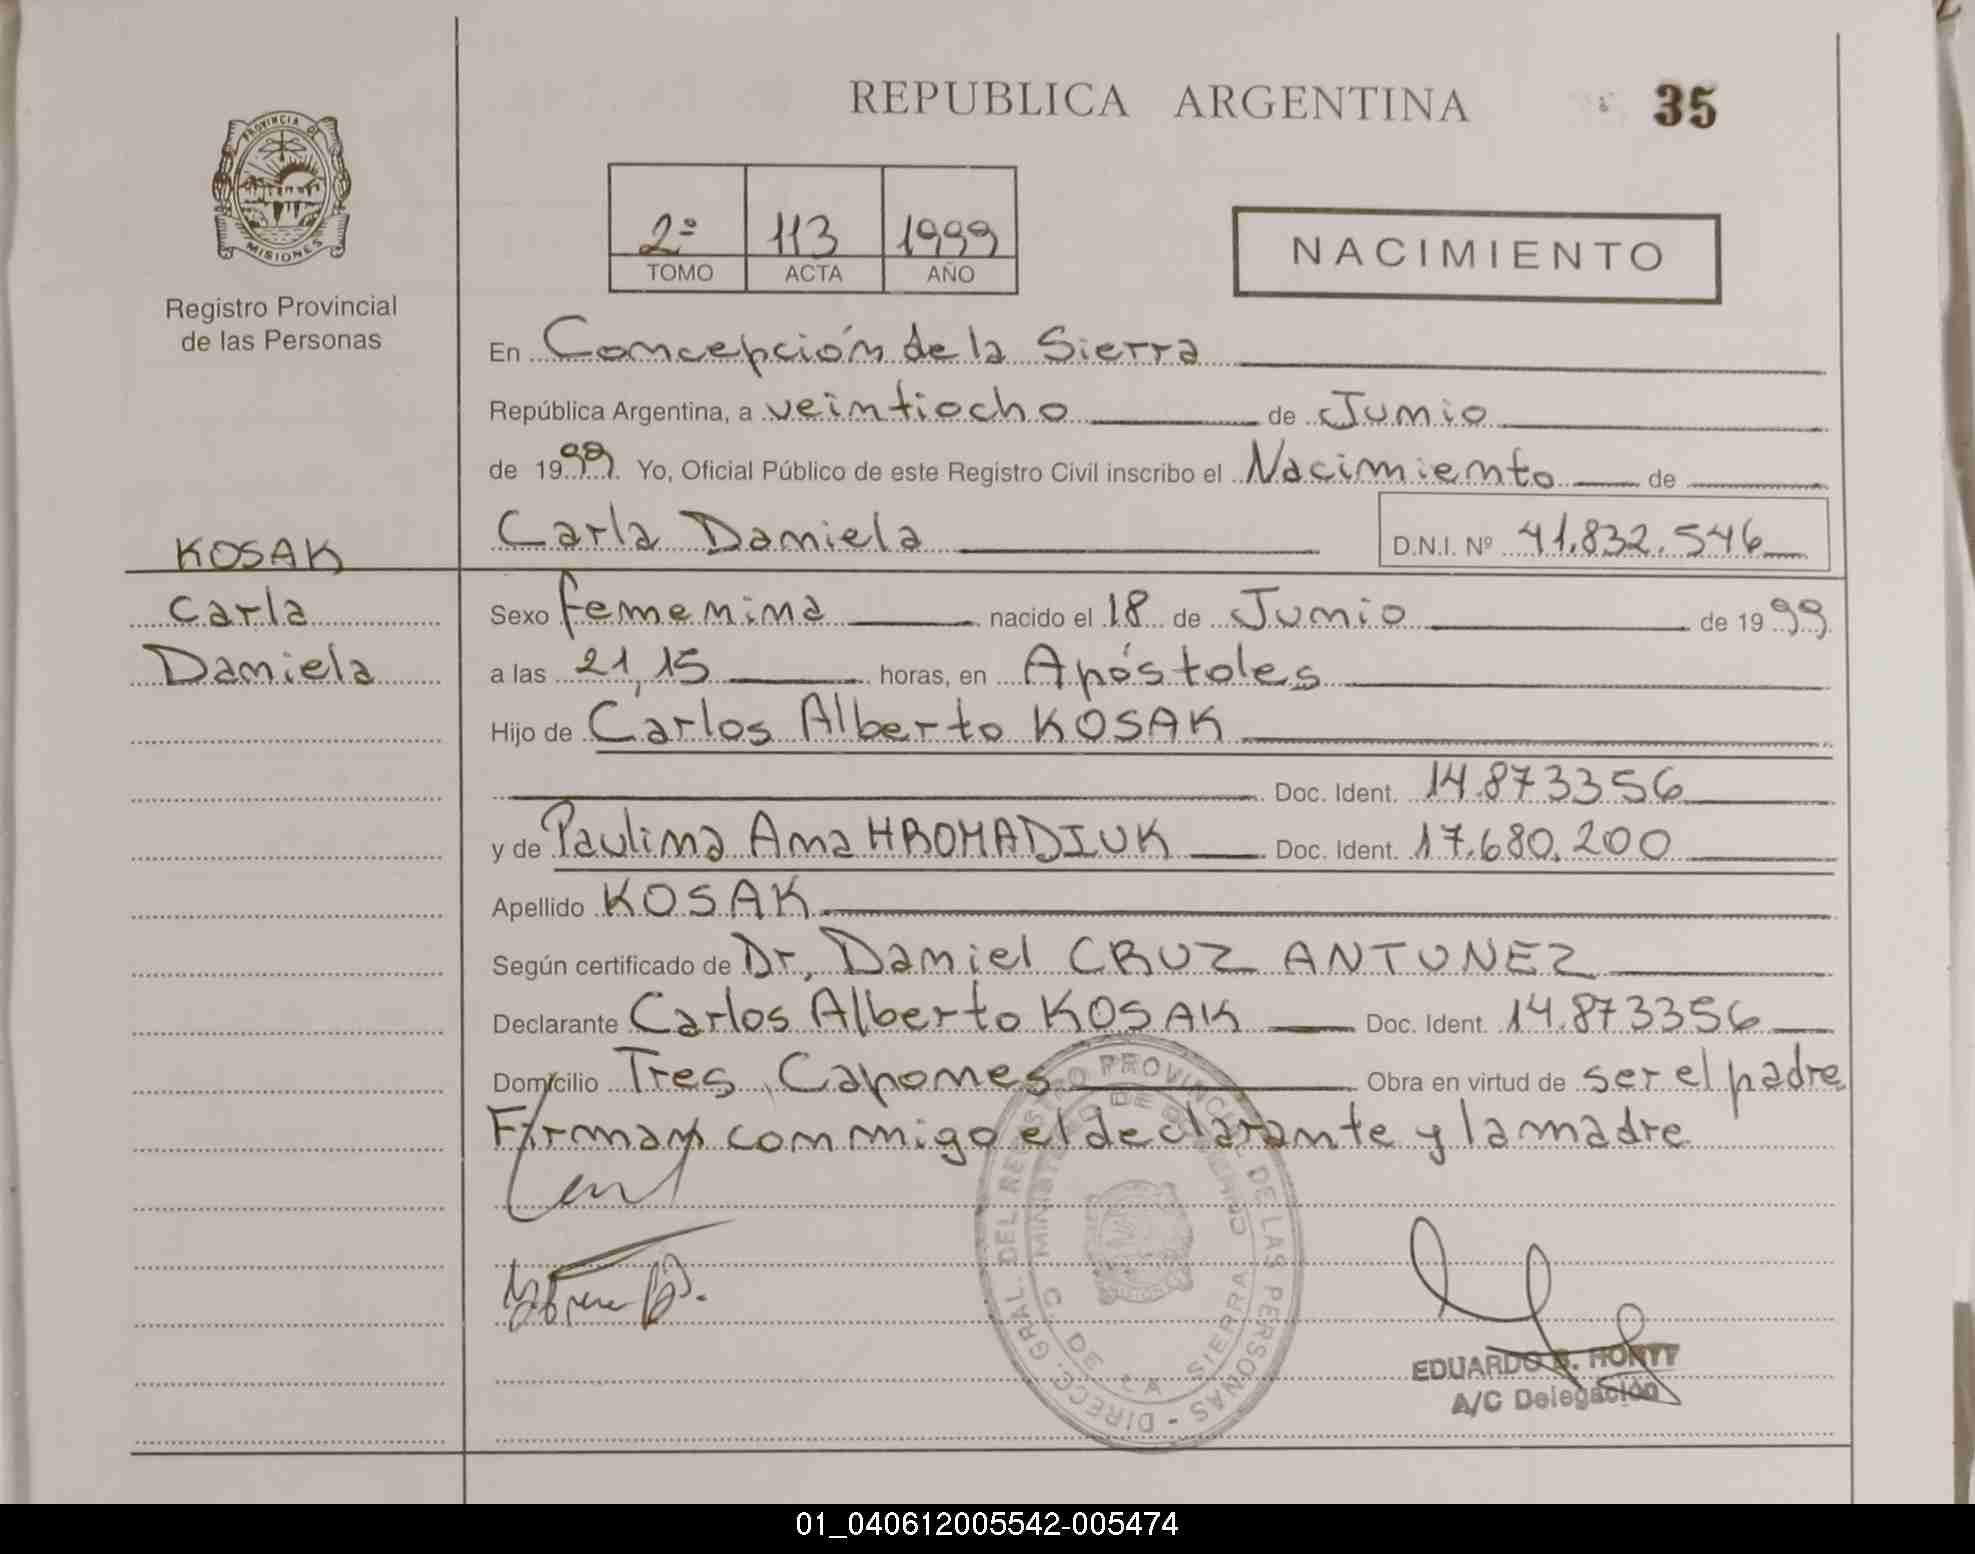 REPUBLICA ARGENTINA
35
PROVINCIA DE
MISIONES
Registro Provincial
de las Personas
2º 113 1999
TOMO ACTA AÑO
NACIMIENTO
En Concepción de la Sierra
República Argentina, a veintiocho de Junio
de 1999. Yo, Oficial Público de este Registro Civil inscribo el Nacimiento de
Carla Daniela D.N.I. Nº 41.832.546
KOSAK
Carla
Daniela
Sexo femenina nacido el 18 de Junio de 1999
a las 21,15 horas, en Apóstoles
Hijo de Carlos Alberto KOSAK
Doc. Ident. 14.873356
y de Paulina Ana HROMADIUK Doc. Ident. 17.680.200
Apellido KOSAK
Según certificado de Dr, Daniel CRUZ ANTUNEZ
Declarante Carlos Alberto KOSAK Doc. Ident. 14.873356
Domicilio Tres Capones Obra en virtud de ser el padre
Firman conmigo el declarante y la madre
DIRECC. GRAL. DEL REGISTRO PROVINCIAL DE LAS PERSONAS -
MINISTERIO DE GOBIERNO
C. DE LA SIERRA
EDUARDO
A/C Delegación
01_040612005542-005474